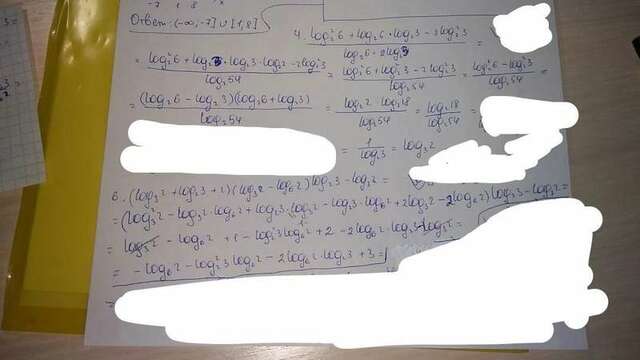 -7 1 8 x
Ответ: (-∞, -7] ∪ [1, 8)
4. (log₂²6 + log₂6 · log₂3 - 2log₂²3) / (log₂6 + 2log₂3) =
= / log₂54 = (log₂²6 + log₂²3 - 2log₂²3) / log₂54 = (log₂²6 - log₂²3) / log₂54 =
= (log₂6 - log₂3)(log₂6 + log₂3) / log₂54 = log₂2 · log₂18 / log₂54 = log₂18 / log₂54 =
= 1 / log₂3 = log₃2
6. (log₃2 + log₂3 + 2)(log₃2 - log₆2) log₂3 - log₃2 =
= (log₃²2 - log₃2 · log₆2 + log₂3 · log₃2 - log₂3 · log₆2 + 2log₃2 - 2log₆2) log₂3 - log₃2 =
= log₃2 - log₆2 + 1 - log₂²3 log₆2 + 2 - 2log₆2 · log₂3 - log₃2 =
= - log₆2 - log₂²3 log₆2 - 2log₆2 · log₂3 + 3 =